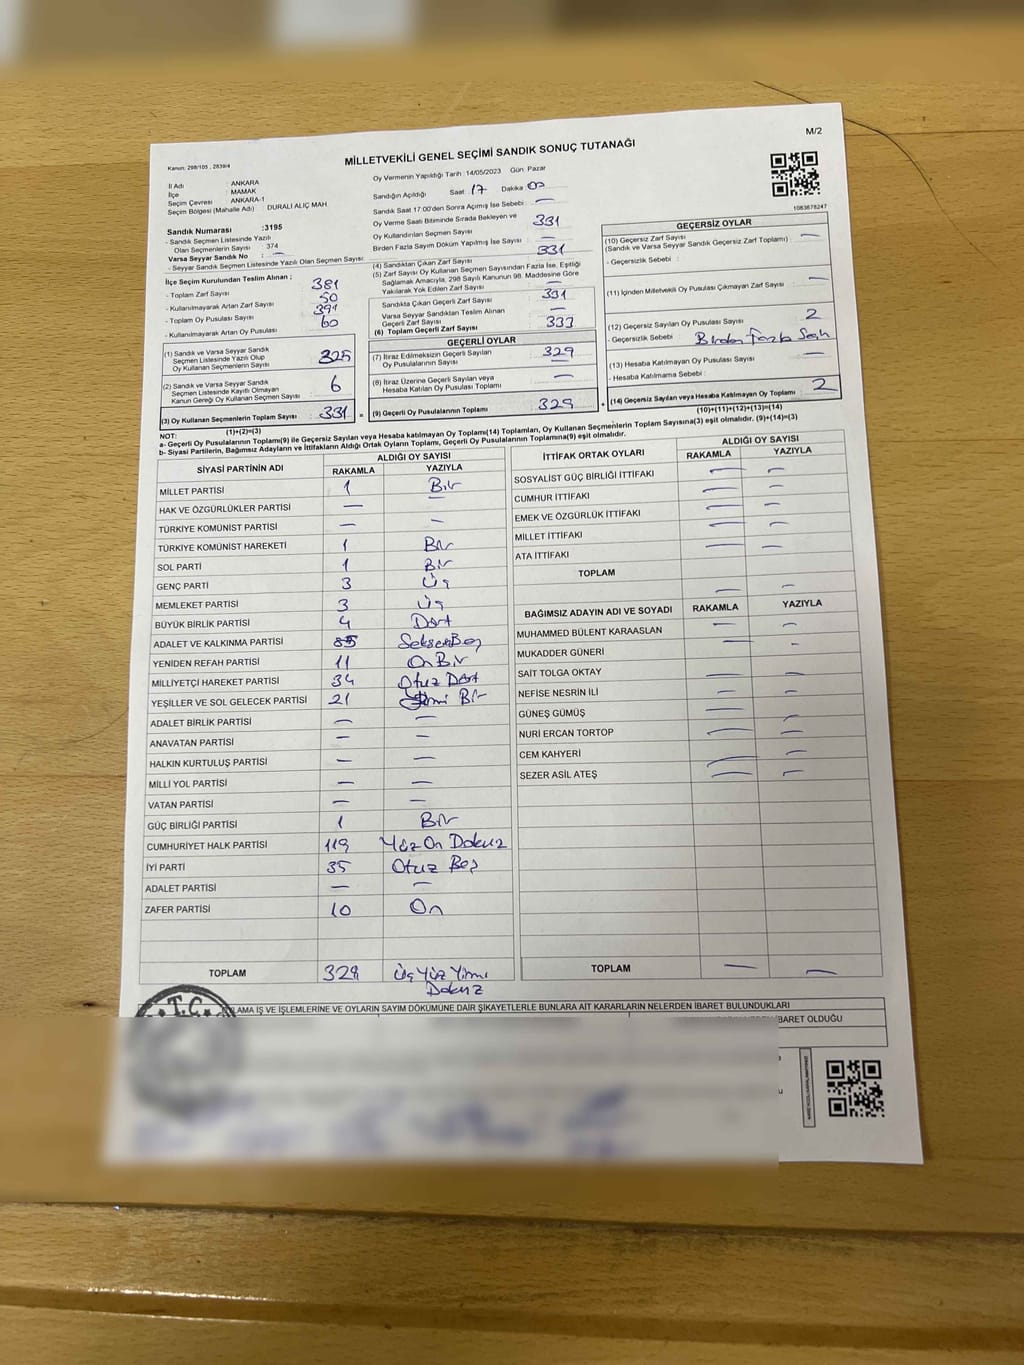 M/2
Kanun: 298/105 , 2839/4
MİLLETVEKİLİ GENEL SEÇİMİ SANDIK SONUÇ TUTANAĞI
1083678247
İl Adı : ANKARA
İlçe : MAMAK
Seçim Çevresi : ANKARA-1
Seçim Bölgesi (Mahalle Adı) : DURALİ ALIÇ MAH
Sandık Numarası :3195
- Sandık Seçmen Listesinde Yazılı
Olan Seçmenlerin Sayısı : 374
Varsa Seyyar Sandık No : —
- Seyyar Sandık Seçmen Listesinde Yazılı Olan Seçmen Sayısı
Oy Vermenin Yapıldığı Tarih :14/05/2023 Gün Pazar
Sandığın Açıldığı Saat 17 Dakika 00
Sandık Saat 17:00'den Sonra Açılmış İse Sebebi : —
Oy Verme Saati Bitiminde Sırada Bekleyen ve
Oy Kullandırılan Seçmen Sayısı 331
Birden Fazla Sayım Döküm Yapılmış İse Sayısı —
İlçe Seçim Kurulundan Teslim Alınan ;
- Toplam Zarf Sayısı 381
- Kullanılmayarak Artan Zarf Sayısı 50
- Toplam Oy Pusulası Sayısı
- Kullanılmayarak Artan Oy Pusulası 60
(1) Sandık ve Varsa Seyyar Sandık
Seçmen Listesinde Yazılı Olup
Oy Kullanan Seçmenlerin Sayısı 325
(2) Sandık ve Varsa Seyyar Sandık
Seçmen Listesinde Kayıtlı Olmayan
Kanun Gereği Oy Kullanan Seçmen Sayısı 6
(3) Oy Kullanan Seçmenlerin Toplam Sayısı 331
(1)+(2)=(3)
(4) Sandıktan Çıkan Zarf Sayısı 331
(5) Zarf Sayısı Oy Kullanan Seçmen Sayısından Fazla İse, Eşitliği
Sağlamak Amacıyla, 298 Sayılı Kanunun 98. Maddesine Göre
Yakılarak Yok Edilen Zarf Sayısı —
Sandıkta Çıkan Geçerli Zarf Sayısı 331
Varsa Seyyar Sandıktan Teslim Alınan
Geçerli Zarf Sayısı —
(6) Toplam Geçerli Zarf Sayısı 333
GEÇERLİ OYLAR
(7) İtiraz Edilmeksizin Geçerli Sayılan
Oy Pusulalarının Sayısı 329
(8) İtiraz Üzerine Geçerli Sayılan veya
Hesaba Katılan Oy Pusulası Toplamı —
(9) Geçerli Oy Pusulalarının Toplamı 329
GEÇERSİZ OYLAR
(10) Geçersiz Zarf Sayısı —
(Sandık ve Varsa Seyyar Sandık Geçersiz Zarf Toplamı)
- Geçersizlik Sebebi :
(11) İçinden Milletvekili Oy Pusulası Çıkmayan Zarf Sayısı —
(12) Geçersiz Sayılan Oy Pusulası Sayısı 2
- Geçersizlik Sebebi : Birden Fazla
(13) Hesaba Katılmayan Oy Pusulası Sayısı —
- Hesaba Katılmama Sebebi :
(14) Geçersiz Sayılan veya Hesaba Katılmayan Oy Toplamı 2
(10)+(11)+(12)+(13)=(14)
NOT:
a- Geçerli Oy Pusulalarının Toplamı(9) ile Geçersiz Sayılan veya Hesaba katılmayan Oy Toplamı(14) Toplamları, Oy Kullanan Seçmenlerin Toplam Sayısına(3) eşit olmalıdır. (9)+(14)=(3)
b- Siyasi Partilerin, Bağımsız Adayların ve İttifakların Aldığı Ortak Oyların Toplamı, Geçerli Oy Pusulalarının Toplamına(9) eşit olmalıdır.
SİYASİ PARTİNİN ADI ALDIĞI OY SAYISI
RAKAMLA YAZIYLA
MİLLET PARTİSİ 1 Bir
HAK VE ÖZGÜRLÜKLER PARTİSİ — —
TÜRKİYE KOMÜNİST PARTİSİ — —
TÜRKİYE KOMÜNİST HAREKETİ 1 Bir
SOL PARTİ 1 Bir
GENÇ PARTİ 3 Üç
MEMLEKET PARTİSİ 3 Üç
BÜYÜK BİRLİK PARTİSİ 4 Dört
ADALET VE KALKINMA PARTİSİ 85 Seksen Beş
YENİDEN REFAH PARTİSİ 11 On Bir
MİLLİYETÇİ HAREKET PARTİSİ 34 Otuz Dört
YEŞİLLER VE SOL GELECEK PARTİSİ 21 Yirmi Bir
ADALET BİRLİK PARTİSİ — —
ANAVATAN PARTİSİ — —
HALKIN KURTULUŞ PARTİSİ — —
MİLLİ YOL PARTİSİ — —
VATAN PARTİSİ — —
GÜÇ BİRLİĞİ PARTİSİ 1 Bir
CUMHURİYET HALK PARTİSİ 119 Yüz On Dokuz
İYİ PARTİ 35 Otuz Beş
ADALET PARTİSİ — —
ZAFER PARTİSİ 10 On
TOPLAM 329 Üç Yüz Yirmi
Dokuz
İTTİFAK ORTAK OYLARI ALDIĞI OY SAYISI
RAKAMLA YAZIYLA
SOSYALİST GÜÇ BİRLİĞİ İTTİFAKI — —
CUMHUR İTTİFAKI — —
EMEK VE ÖZGÜRLÜK İTTİFAKI — —
MİLLET İTTİFAKI — —
ATA İTTİFAKI — —
TOPLAM — —
BAĞIMSIZ ADAYIN ADI VE SOYADI RAKAMLA YAZIYLA
MUHAMMED BÜLENT KARAASLAN — —
MUKADDER GÜNERİ — —
SAİT TOLGA OKTAY — —
NEFİSE NESRİN İLİ — —
GÜNEŞ GÜMÜŞ —
NURİ ERCAN TORTOP — —
CEM KAHYERİ — —
SEZER ASİL ATEŞ — —
TOPLAM — —
T.C.
LAMA İŞ VE İŞLEMLERİNE VE OYLARIN SAYIM DÖKÜMÜNE DAİR ŞİKAYETLERLE BUNLARA AİT KARARLARIN NELERDEN İBARET BULUNDUKLARI
İBARET OLDUĞU